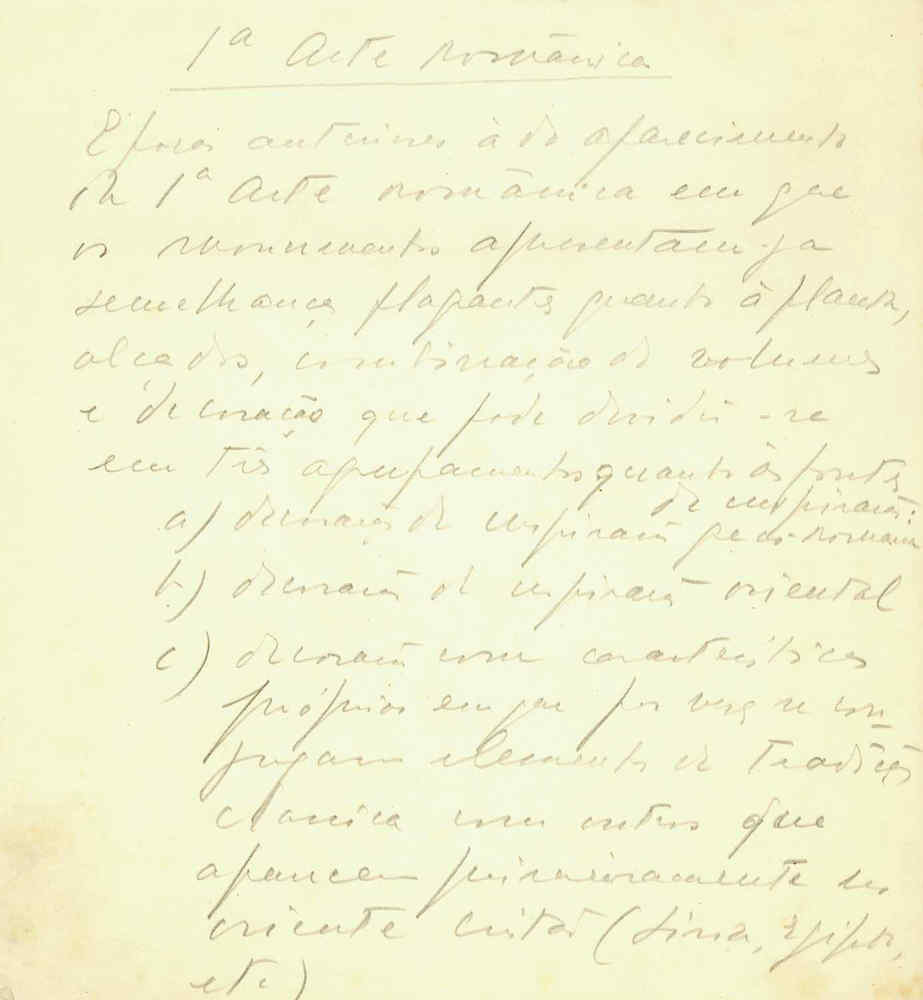 1ª Arte românica
Épocas anteriores à do aparecimento
da 1ª Arte românica em que
os monumentos apresentam já
semelhança flagrante quanto à planta,
alçados, combinação de volumes
e decoração que pode dividir-se
em três agrupamentos quanto às fontes
de inspiração:
a) decoração de inspiração greco-romana
b) decoração de inspiração oriental
c) decoração com características
próprias em que por vezes se con-
jugam elementos de tradição
clássica com outros que
aparecem primeiramente no
oriente cristão (Síria, Egipto,
etc)